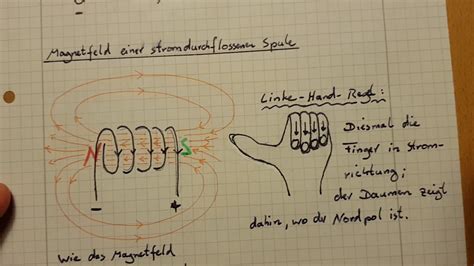 Magnetfeld einer stromdurchflossenen Spule
Linke-Hand-Regel:
Diesmal die
Finger in Strom-
richtung;
der Daumen zeigt
dahin, wo der Nordpol ist.
N
S
-
+
Wie das Magnetfeld